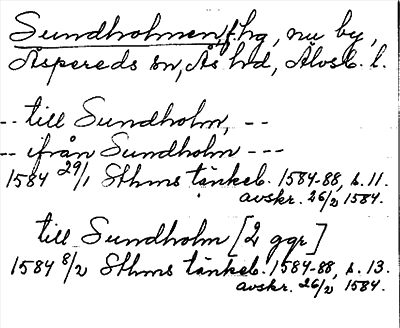 Sundholmen, f. hg, nu by,
Äspereds sn, Ås hd, Älvsb. l.
-- till Sundholm, --
-- ifrån Sundholm ---
1584 29/1 Sthms tänkeb. 1584-88, s. 11.
avskr. 26/2 1584.
till Sundholm [2 ggr]
1584 8/2 Sthms tänkeb. 1584-88, s. 13.
avskr. 26/2 1584.